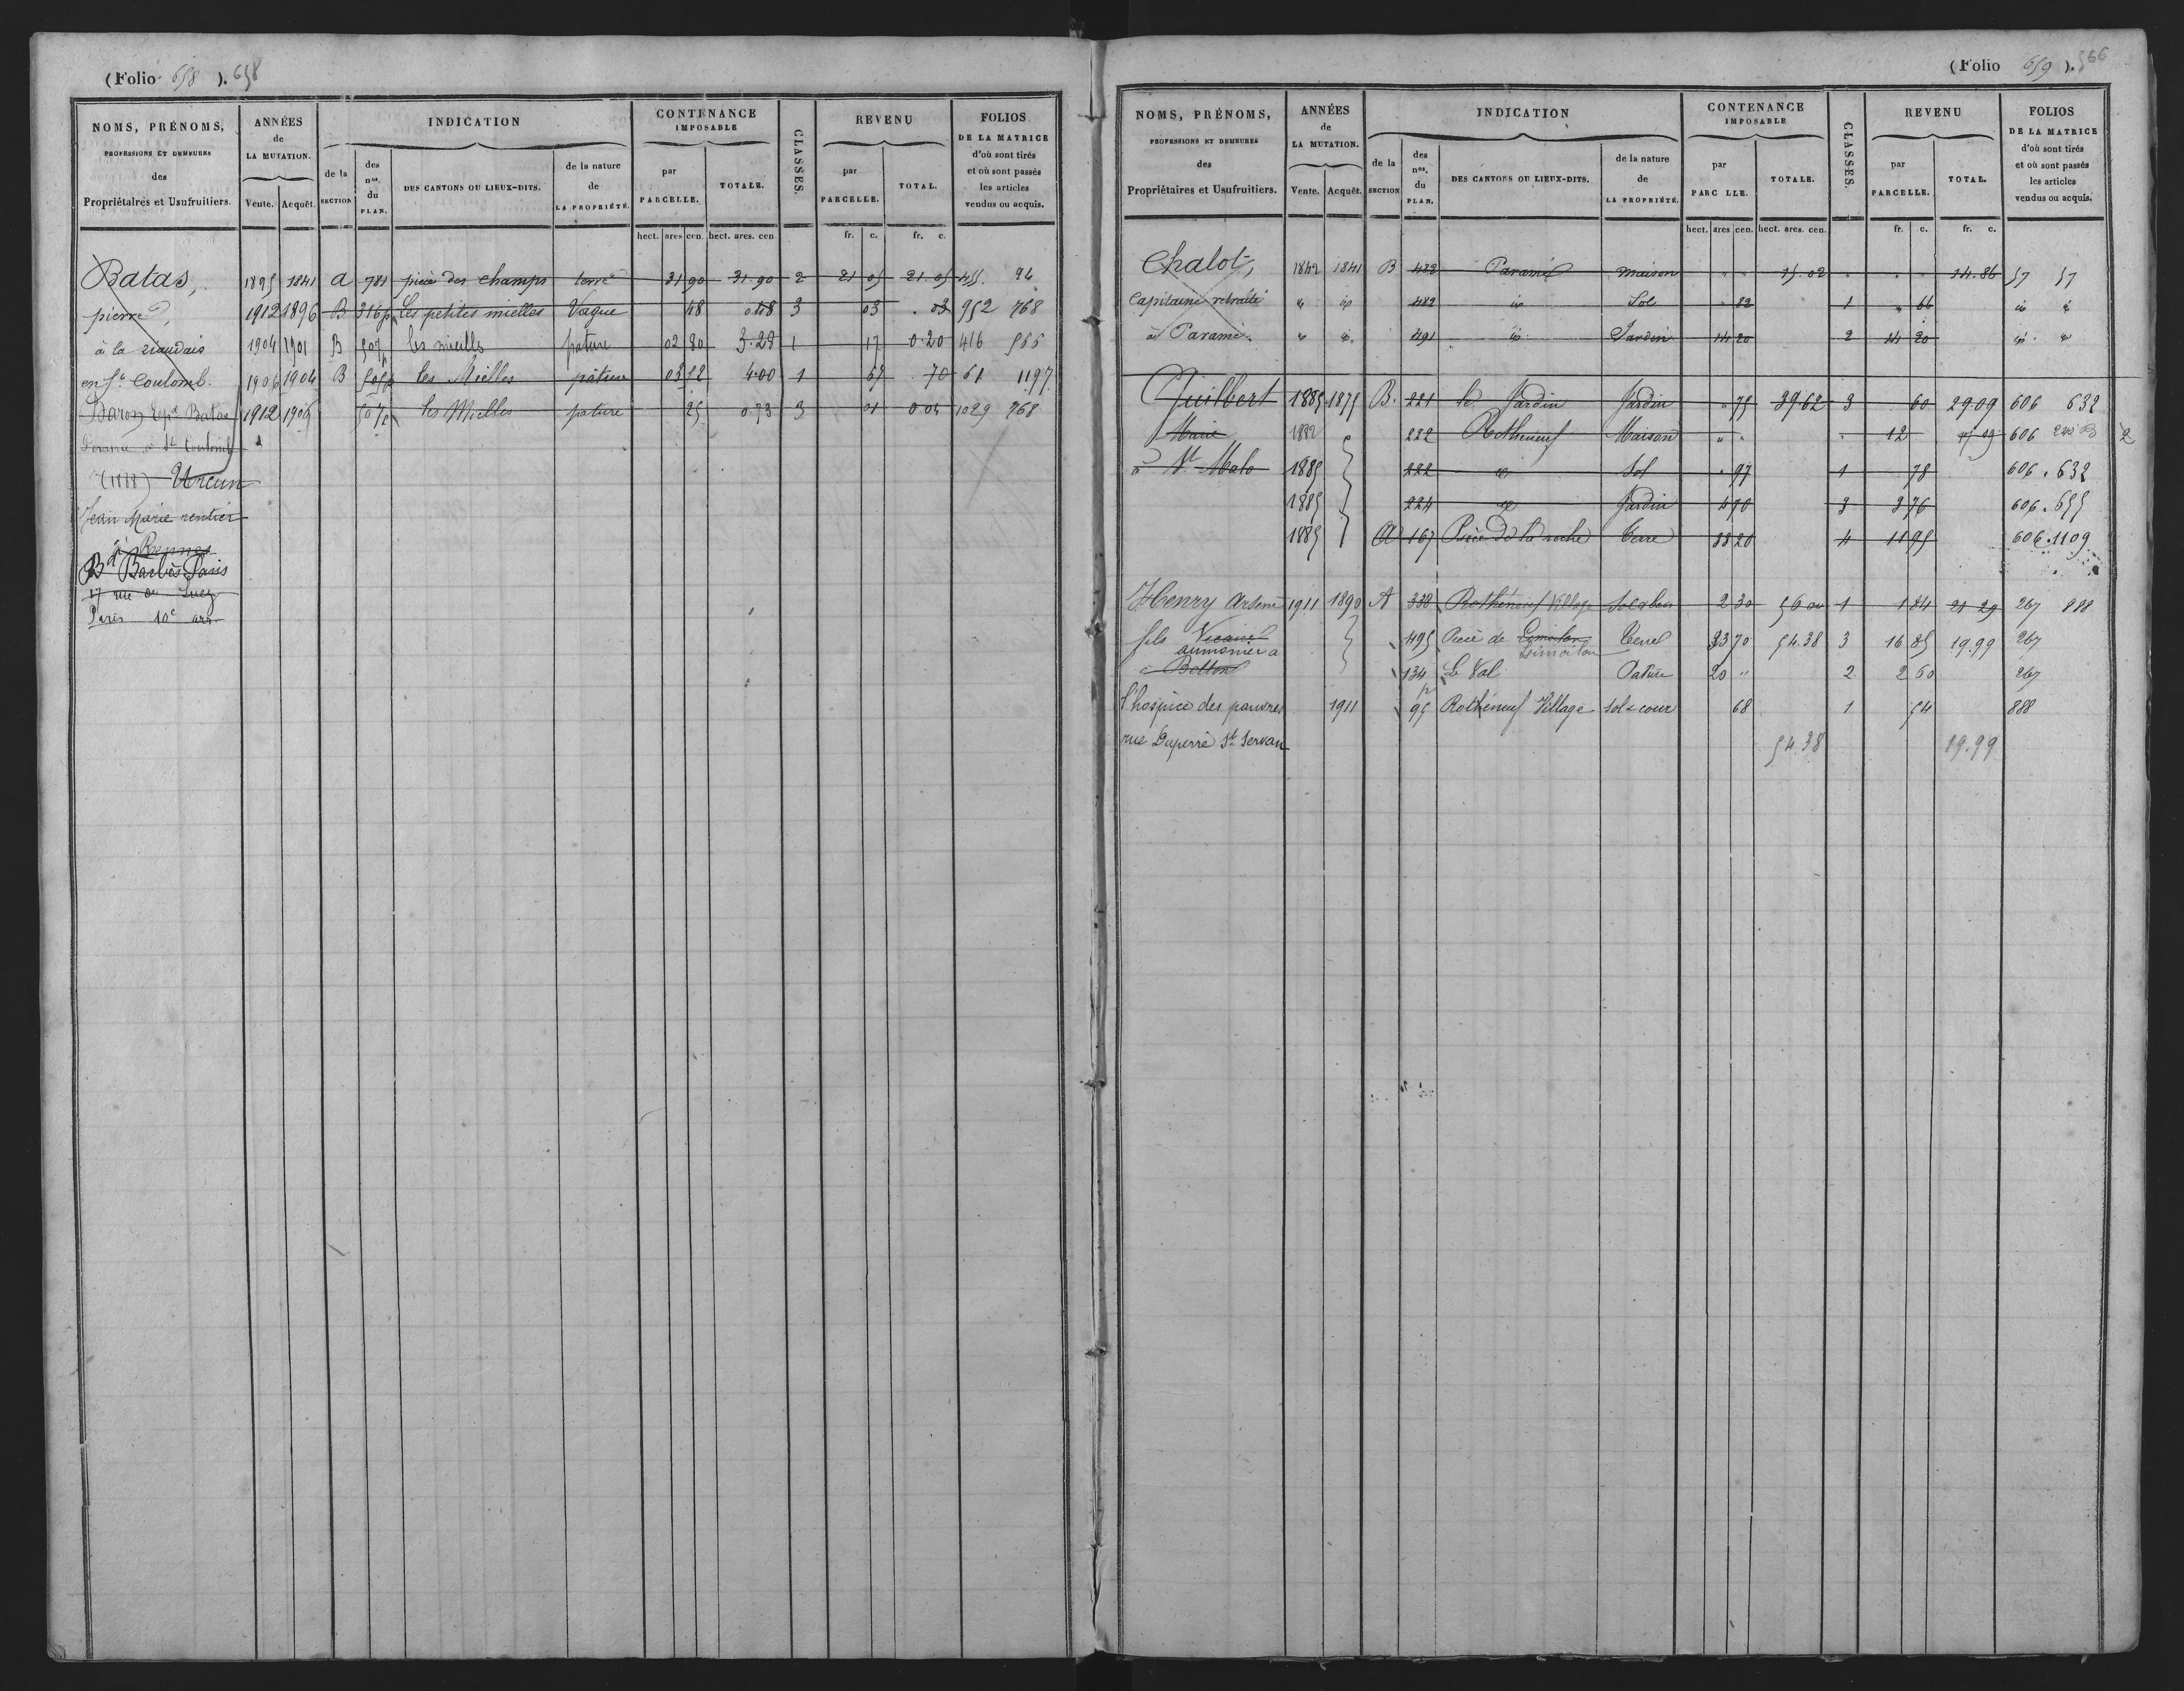 (Folio 658 ). 658
NOMS, PRÉNOMS, PROFESSIONS ET DEMEURES des Propriétaires et Usufruitiers.
ANNÉES de LA MUTATION. Vente. Acquêt.
INDICATION
de la SECTION
des nos. du PLAN.
DES CANTONS OU LIEUX-DITS.
de la nature de LA PROPRIÉTÉ.
CONTENANCE IMPOSABLE
par PARCELLE. TOTALE.
hect. ares cen. hect. ares. cen.
CLASSES.
REVENU
par PARCELLE. TOTAL.
fr. c. fr. c.
FOLIOS DE LA MATRICE d'où sont tirés et où sont passés les articles vendus ou acquis.
Batas, 1895 1841 A 781 pièce des champs terre 31 90 31.90 2 21 05 21.05 455. 94
pierre, 1912 1896 B 316p Les petites mielles Vague 48 0.48 3 03 .03 952 768
à la riaudais 1904 1901 B 507p les mielles pature 02 80 3.28 1 17 0.20 416 566
en St. Coulomb. 1906 1904 B 505p les Mielles pâture 03 52 4.00 1 67 70 61 1197
Baron Batas 1912 1906 507p les Mielles pature 25 0.73 3 01 0.04 1029 768
à St Coulomb
(1888)
Jean Marie rentier
à Rennes
Bd Barbès Paris
17 rue de
Paris 10e arr
(Folio 659 ). 566
NOMS, PRÉNOMS, PROFESSIONS ET DEMEURES des Propriétaires et Usufruitiers.
ANNÉES de LA MUTATION. Vente. Acquêt.
INDICATION
de la SECTION
des nos. du PLAN.
DES CANTONS OU LIEUX-DITS.
de la nature de LA PROPRIÉTÉ.
CONTENANCE IMPOSABLE
par PARC LLE. TOTALE.
hect. ares cen. hect. ares. cen.
CLASSES.
REVENU
par PARCELLE. TOTAL.
fr. c. fr. c.
FOLIOS DE LA MATRICE d'où sont tirés et où sont passés les articles vendus ou acquis.
Chalot, 1842 1841 B 482 Paramé maison " " 15.02 " " " 14.86 57 57
Capitaine retraité " id 482 id Sol " 82 1 " 66 id "
à Paramé. " id. 491 id Jardin 14 20 2 14 20 id. "
Guilbert 1885 1875 B. 221 le Jardin Jardin " 75 39 62 3 60 29.09 606 632
Marie 1882 222 Rotheneuf Maison " " " 12 606
à St Malo 1885 222 id Sol " 97 1 78 606. 632
1885 224 id Jardin 4 70 3 3 76 606. 655
1885 A 167 Pièce de la roche Terre 33 20 4 11 95 606. 1109
Henry Arsène 1911 1890 A 338 Rothéneuf Village 2 30 56 00 1 1 84 21 29 267 888
fils Vicaire 495 Pièce de Limoilou Limoilou 33 70 54.38 3 16 85 19.99 267
aumonier à
à Betton 134 Le Val Pature 20 " 2 2 60 267
l'hospice des pauvres 1911 95 Rothéneuf Village sol & cour 68 1 54 888
rue Duperré St Servan 54.38 19.99